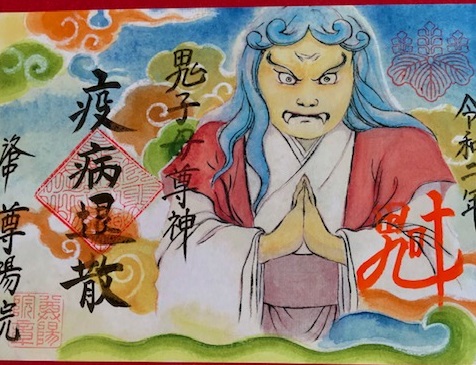 令和二年
魁
鬼子母尊神
疫病退散
洛中 尊陽院